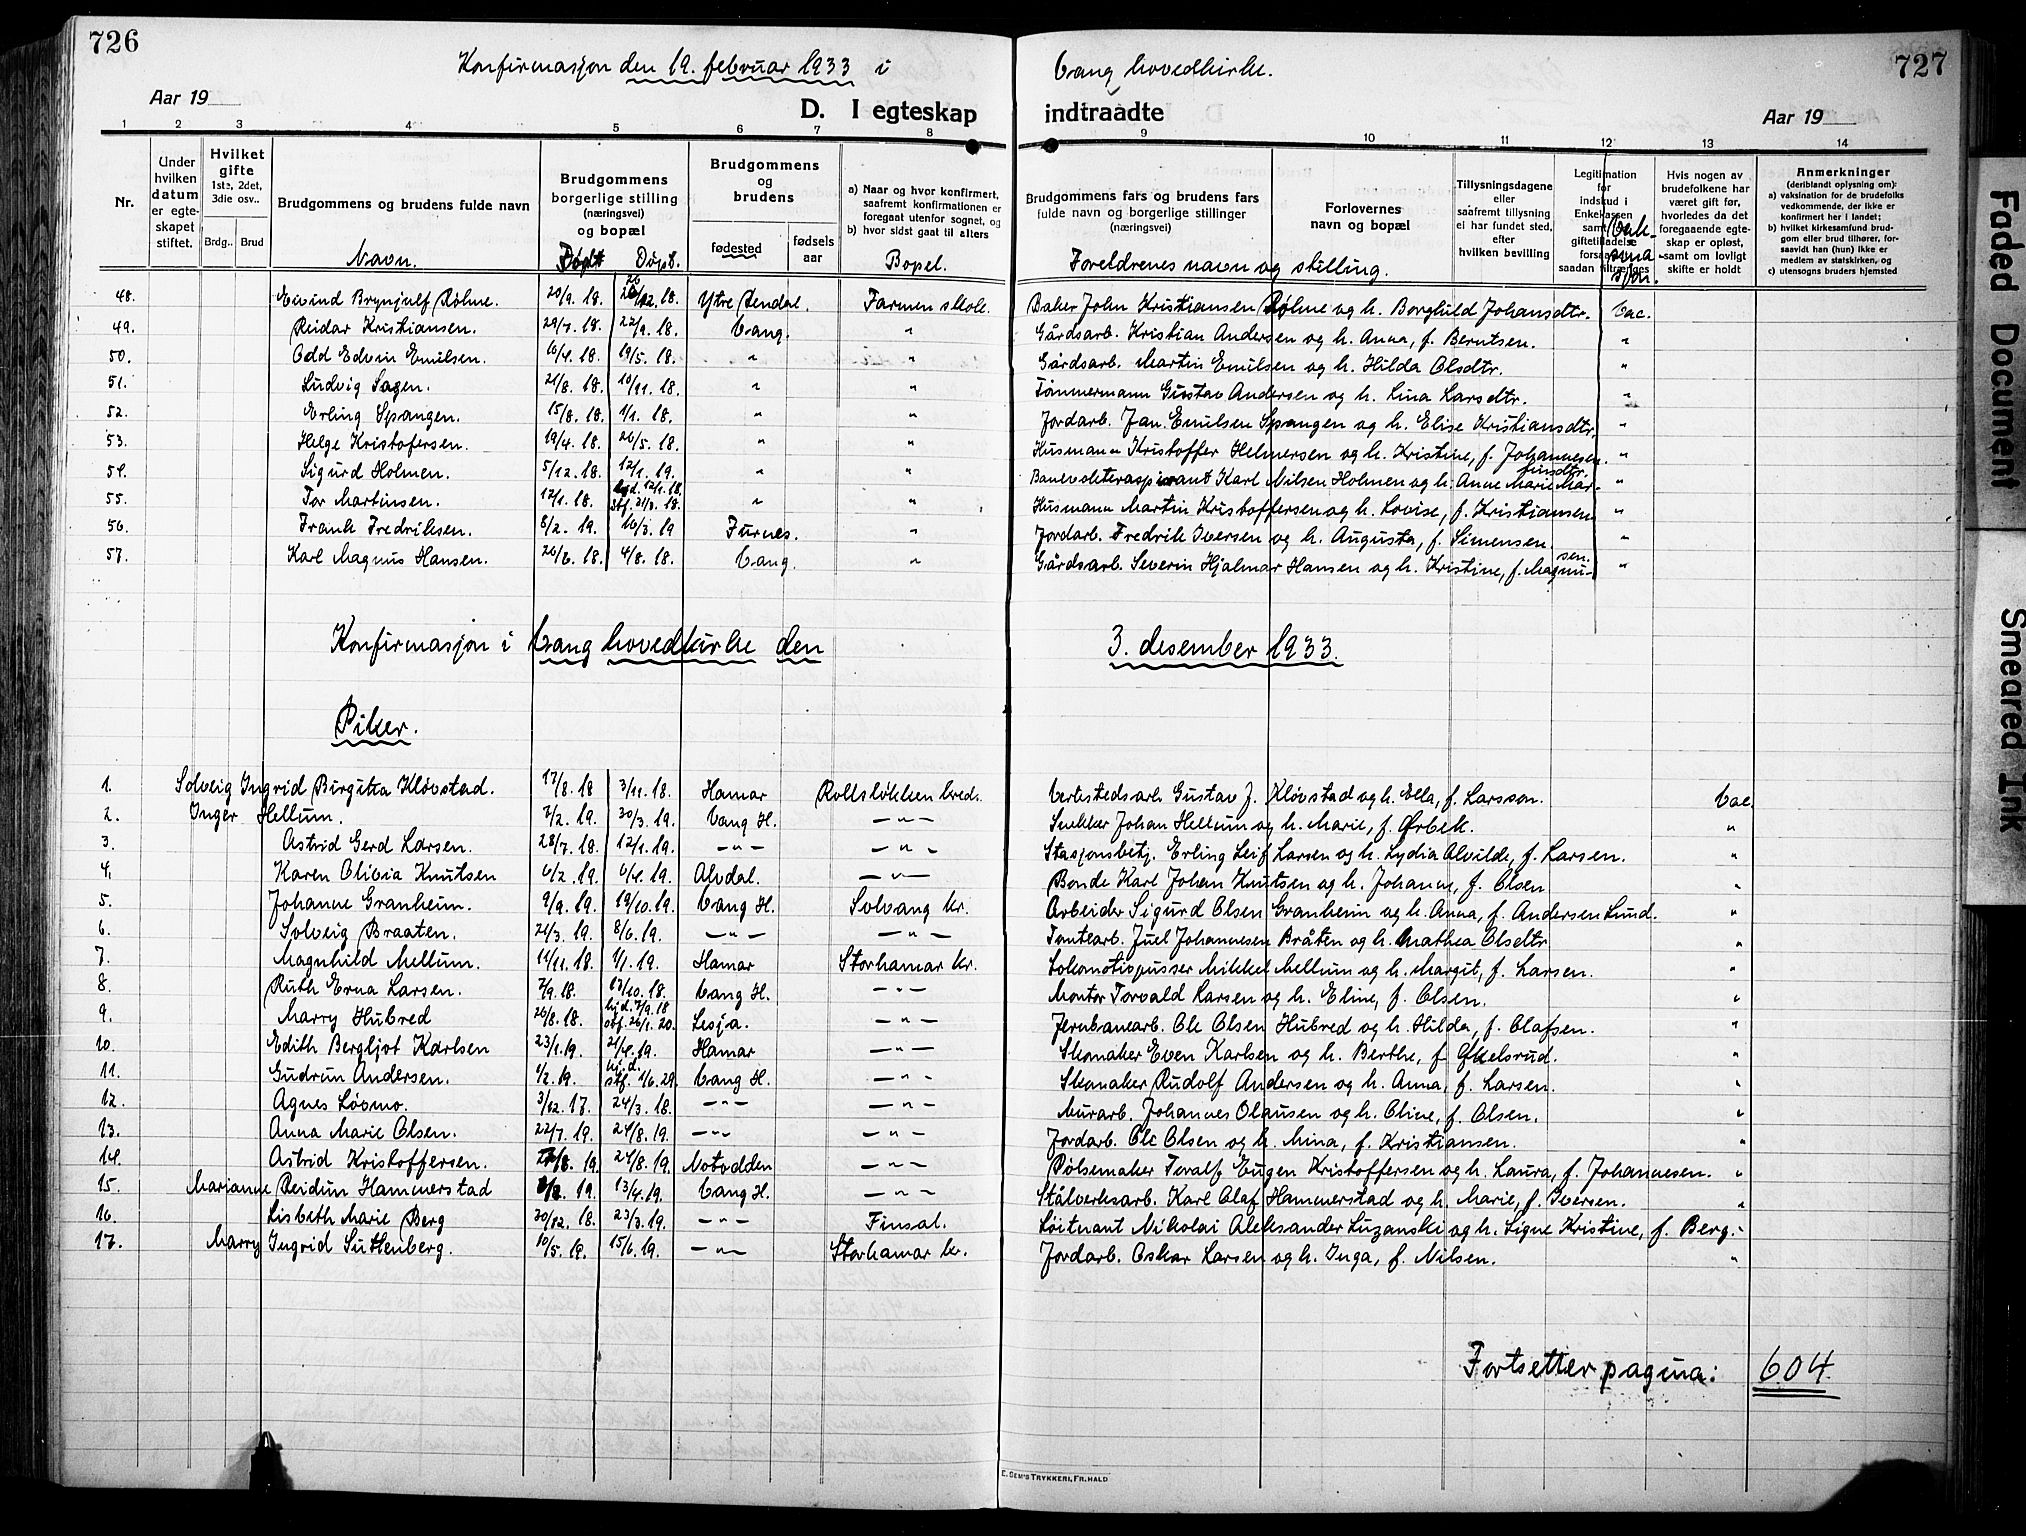 726
727
Konfirmasjon den 19. februar 1933 i Vang hovedkirke.
Aar 19
D. I egteskap indtraadte
Aar 19
1 2 3 4 5 6 7 8 9 10 11 12 13 14
Nr.
Under hvilken datum er egteskapet stiftet.
Hvilket gifte 1ste, 2det, 3die osv..
Brdg.. Brud
Brudgommens og brudens fulde navn
Navn.
Brudgommens borgerlige stilling (næringsvei) og bopæl
Født Døpt.
Brudgommens og brudens
fødested
fødsels aar
a) Naar og hvor konfirmert, saafremt konfirmationen er foregaat utenfor sognet, og
b) hvor sidst gaat til alters
Bopel.
Brudgommens fars og brudens fars fulde navn og borgerlige stillinger (næringsvei)
Foreldrenes navn og stilling.
Forlovernes navn og bopæl
Tillysningsdagene eller saafremt tillysning ei har fundet sted, efter hvilken bevilling
Legitimation for indskud i Enkekassen samt
Vaksinasjon.
Hvis nogen av brudefolkene har været gift før, hvorledes da det foregaaende egteskap er opløst, samt om lovligt skifte er holdt
Anmerkninger
(deriblandt oplysning om):
a) vaksination for de brudefolks vedkommende, der ikke er konfirmert her i landet;
b) hvilket kirkesamfund brudgom eller brud tilhører, forsaavidt han (hun) ikke er medlem av statskirken, og
c) utensogns bruders hjemsted
48. Eivind Brynjulf Røhne. 20/9. 18. 26/12. 18. Ytre Rendal. Farmen skole. Baker John Kristiansen Røhne og h. Borghild Johansdtr. Vac.
49. Reidar Kristiansen. 29/7. 18. 22/9. 18. Vang. " Gårdsarb. Kristian Andersen og h. Anna, f. Berntsen. "
50. Odd Edvin Emilsen. 16/4. 18. 19/5. 18. " " Gårdsarb. Martin Emilsen og h. Hilda Olsdtr. "
51. Ludvig Sagen. 21/8. 18. 10/11. 18. " " Tømmermann Gustav Andersen og h. Lina Larsdtr. "
52. Erling Spangen. 15/8. 18. 1/1. 18. " " Jordarb. Jan Emilsen Spangen og h. Elise Kristiansdtr. "
53. Helge Kristofersen. 19/4. 18. 26/5. 18. " " Husmann Kristoffer Helmersen og h. Kristine, f. Johannesen. "
54. Sigurd Holmen. 5/12. 18. 12/1. 19. " " Banevokteraspirant Karl Nilsen Holmen og h. Anne Marie Martinsdtr. "
55. Tor Martinsen. 12/1. 18. hjd. 12/1. 18. Stf. 21/3. 18. " " Husmann Martin Kristoffersen og h. Lovise, f. Kristiansen "
56. Frank Fredriksen. 8/2. 19. 16/3. 19 Furnes. " Jordarb. Fredrik Iversen og h. Augusta, f. Simensen. "
57. Karl Magnus Hansen. 26/6. 18. 4/8. 18. Vang. " Gårdsarb. Severin Hjalmar Hansen og h. Kristine, f. Magnussen. "
Konfirmasjon i Vang hovedkirke den 3. desember 1933.
Piker.
1. Solveig Ingrid Birgitta Kløvstad. 17/8. 18 3/11. 18. Hamar Rollsløkken kreds. Verkstedsarb. Gustav J. Kløvstad og h. Ella, f. Larsson. Vac.
2. Inger Hellum. 2/2. 19. 30/3. 19. Vang H. — " — Snekker Johan Hellum og h. Marie, f. Ørbek. "
3. Astrid Gerd Larsen. 28/7. 18. 12/1. 19. — " — — " — Stasjonsbetj. Erling Leif Larsen og h. Lydia Alvilde, f. Larsen. "
4. Karen Olivia Knutsen 6/2. 19. 6/4. 19. Alvdal. — " — Bonde Karl Johan Knutsen og h. Johanne, f. Olsen "
5. Johanne Granheim. 9/9. 19. 19/10. 19. Vang H. Solvang kr. Arbeider Sigurd Olsen Granheim og h. Anna, f. Andersen Lund. "
6. Solveig Braaten. 24/3. 19. 8/6. 19. — " — — " — Tomtearb. Juel Johannesen Bråten og h. Mathea Olsdtr "
7. Magnhild Mellum. 14/11. 18. 1/1. 19. Hamar Storhamar kr. Lokomotivpusser Mikkel Mellum og h. Margit, f. Larsen. "
8. Ruth Erna Larsen. 7/9. 18. 13/10. 18. Vang H. — " — Montør Torvald Larsen og h. Eline, f. Olsen. "
9. Marry Hubred 26/8. 18. hjd. 7/9. 18 stf. 26/1. 20. Lesja. — " — Jernbanearb. Ole Olsen Hubred og h. Hilda, f. Olafsen. "
10. Edith Bergljot Karlsen 23/1. 19. 21/4. 19. Hamar — " — Skomaker Even Karlsen og h. Berthe, f. Økelsrud. "
11. Gudrun Andersen. 1/2. 19. hj.d. stf. 1/6. 29. Vang H. — " — Skomaker Rudolf Andersen og h. Anna, f. Larsen. "
12. Agnes Løvmo. 3/12. 17. 24/3. 18. — " — — " — Murarb. Johannes Olausen og h. Oline, f. Olsen. "
13. Anna Marie Olsen. 22/7. 19. 24/8. 19. — " — — " — Jordarb. Ole Olsen og h. Mina, f. Kristiansen. "
14. Astrid Kristoffersen. 19. 24/8. 19. Notodden — " — Pølsemaker Toralf Eugen Kristoffersen og h. Laura, f. Johannesen. "
15. Marianne Reidun Hammerstad 19. 13/4. 19. Vang H. — " — Stålverksarb. Karl Olaf Hammerstad og h. Marie, f. Iversen. "
16. Lisbeth Marie Berg 20/12. 18. 23/3. 19. — " — Finsal. Løitnant Nikolai Aleksander Luzanski og h. Signe Kristine, f. Berg. "
17. Marry Ingrid Suttenberg. 10/5. 19. 15/6. 19. — " — Storhamar kr. Jordarb. Oskar Larsen og h. Inga, f. Nilsen. "
Fortsetter pagina: 604
E. SEM'S TRYKKERI, FR.HALD
Faded Document
Smeared Ink